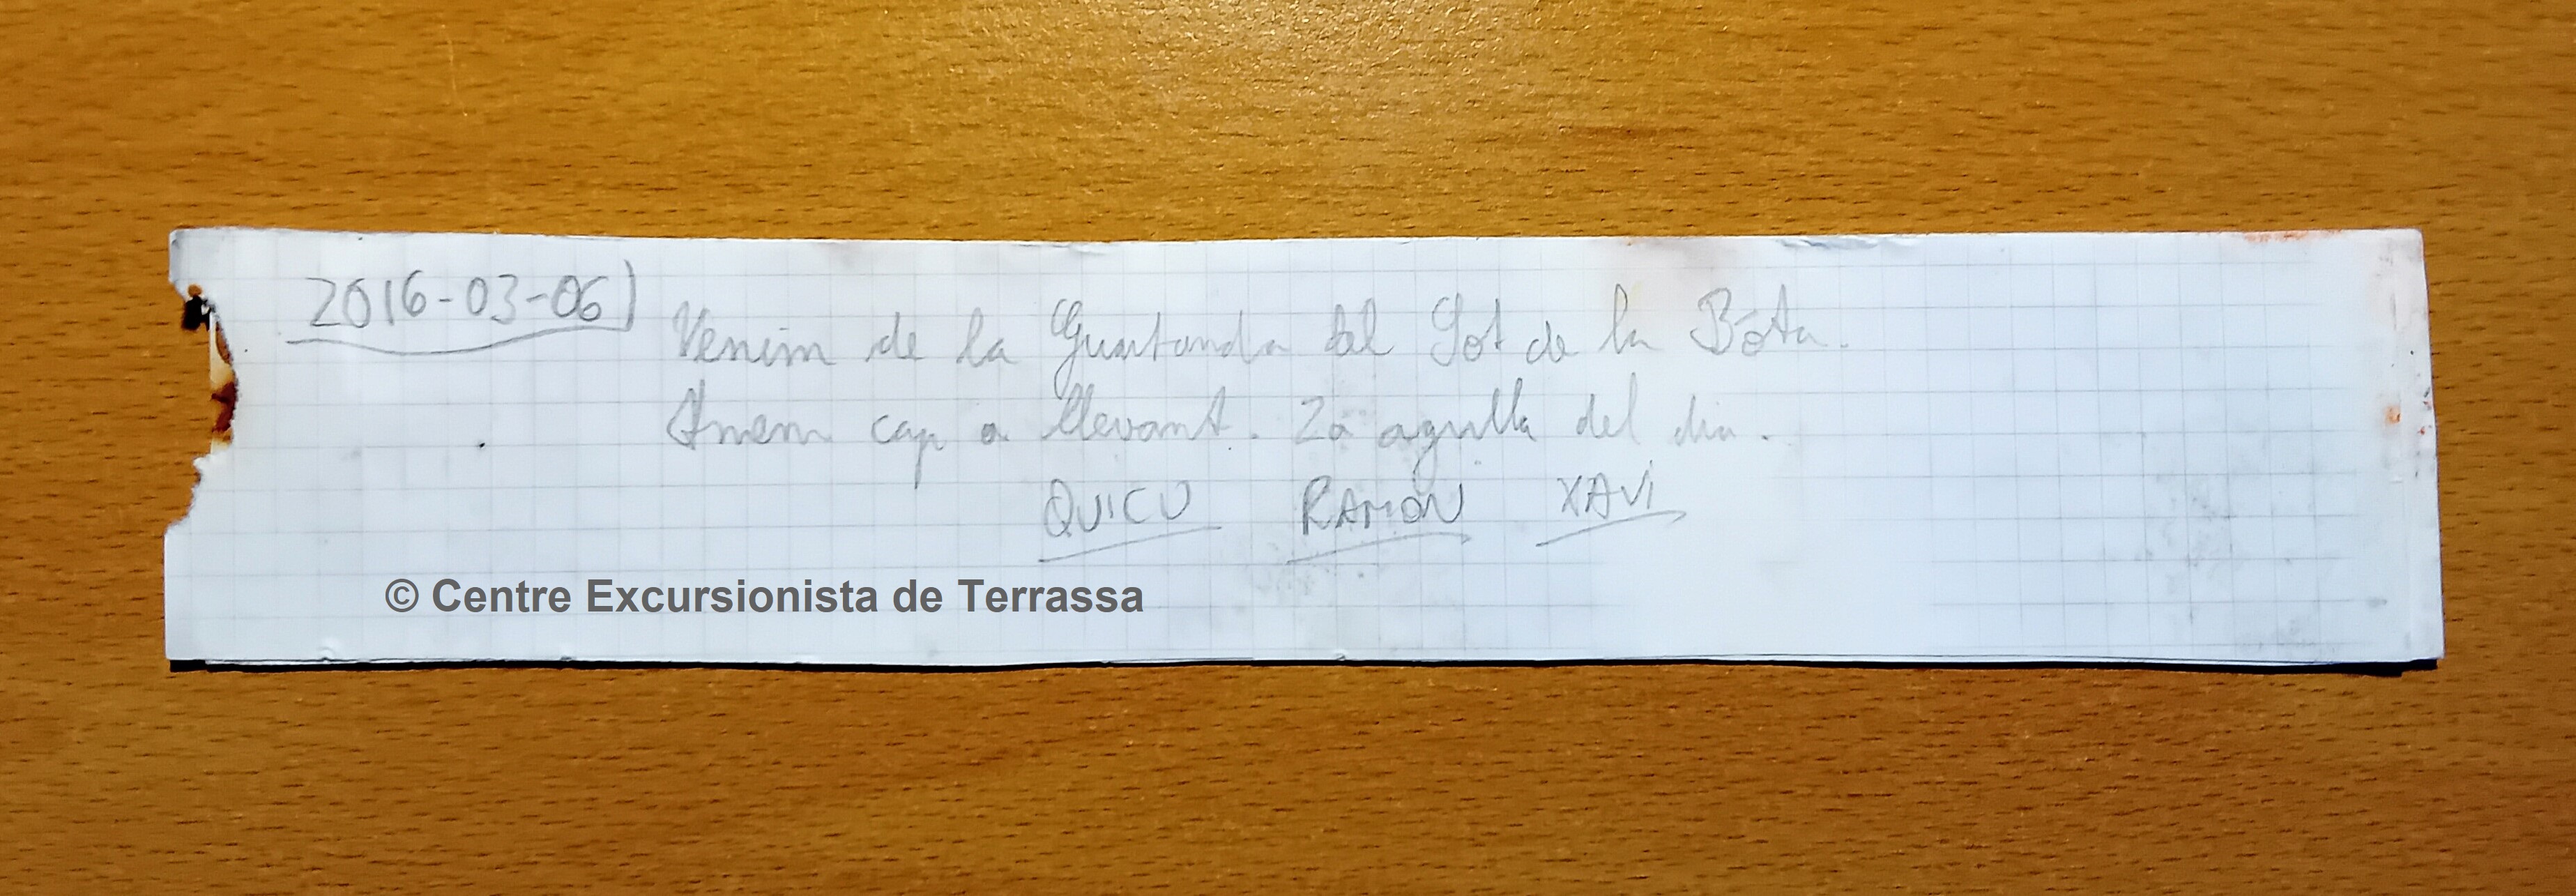 2016-03-06)
Venim de la Guaitanda del Sot de la Bóta.
Anem cap a llevant. 2a agulla del dia.
QUICU RAMON XAVI
© Centre Excursionista de Terrassa